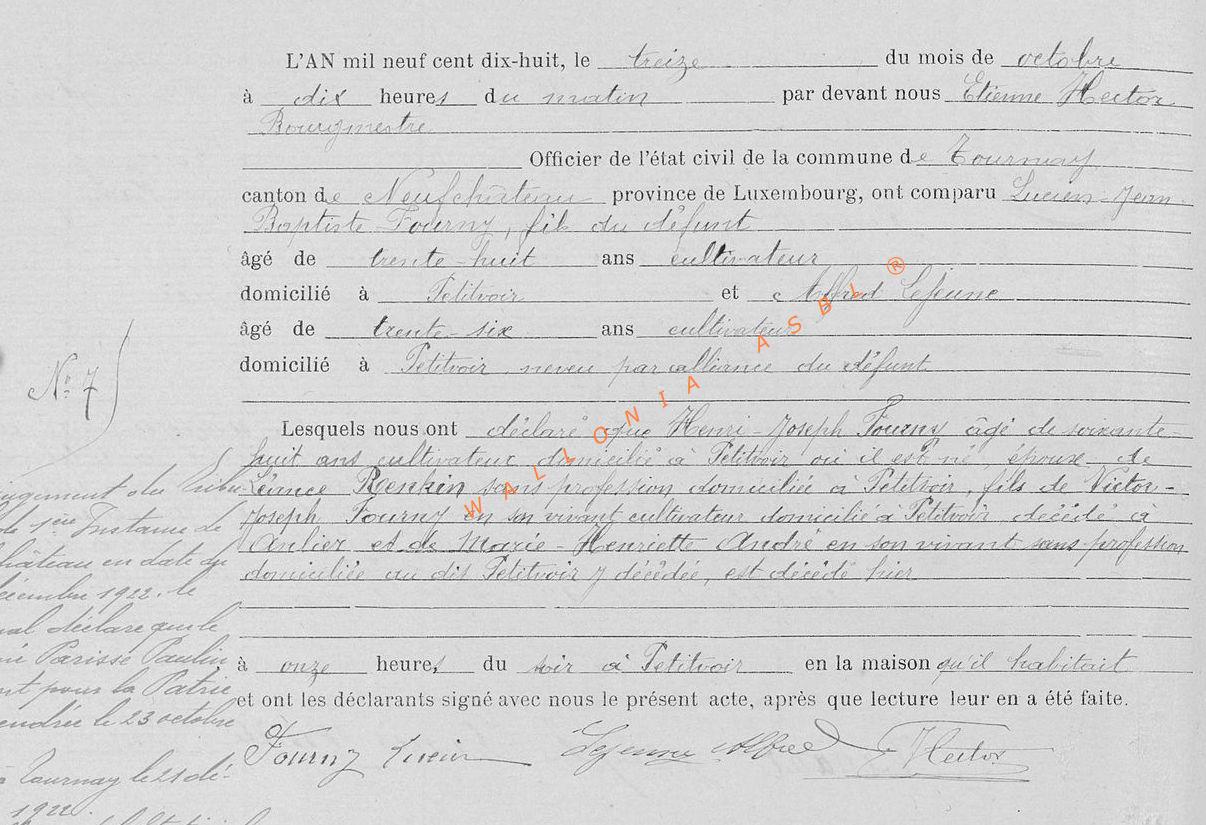 L'AN mil neuf cent dix-huit, le treize du mois de octobre
à dix heures du matin par devant nous Etienne Hector
Bourgmestre
Officier de l'état civil de la commune de Tournay
canton de Neufchâteau province de Luxembourg, ont comparu Lucien-Jean
Baptiste Fourny, fils du défunt
âgé de trente-huit ans cultivateur
domicilié à Petitvoir et Alfred Lejeune
âgé de trente-six ans cultivateur
domicilié à Petitvoir neveu par alliance du défunt
N° 7
Lesquels nous ont déclaré que Henri-Joseph Fourny âgé de soixante-
huit ans cultivateur domicilié à Petitvoir où il est né, époux de
Renkin sans profession domiciliée à Petitvoir, fils de Victor-
Joseph Fourny en son vivant cultivateur domicilié à Petitvoir décédé à
Anlier et de Marie-Henriette André en son vivant sans profession
domiciliée au dit Petitvoir y décédée, est décédé hier
à onze heures du soir à Petitvoir en la maison qu'il habitait
et ont les déclarants signé avec nous le présent acte, après que lecture leur en a été faite.
Fourny Lucien Lejeune Alfred E Hector
jugement du Tribu-
de 1ère Instance de
château en date du
décembre 1922. le
nal déclare que le
Parisse Paulin
nt pour la Patrie
23 octobre
à Tournay le 21 dé-
1922.
WALLONIA ASBL ®